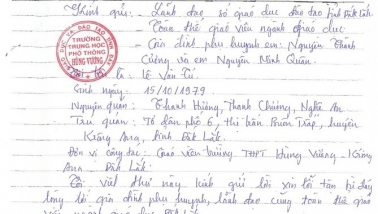 Kính gửi: - Lãnh đạo sở giáo dục đào tạo tỉnh Đắk Lắk.
- Toàn thể giáo viên ngành giáo dục.
- Gia đình phụ huynh em: Nguyễn Thành
Cường và em Nguyễn Minh Quân.
SỞ GIÁO DỤC VÀ ĐÀO TẠO
TRƯỜNG
TRUNG HỌC
PHỔ THÔNG
HÙNG VƯƠNG
Tôi là: Lê Văn Tú
Sinh ngày: 15/10/1979
Nguyên quán: Thanh Hương, Thanh Chương, Nghệ An
Trú quán: Tổ dân phố 6, thị trấn Buôn Trấp, huyện
Krông Ana, tỉnh Đắk Lắk.
Đơn vị công tác: Giáo viên trường THPT Hùng Vương - Krông
Ana - Đắk Lắk.
Tôi viết thư này kính gửi lời xin lỗi tận đáy
lòng tới gia đình phụ huynh, lãnh đạo cùng toàn thể giáo